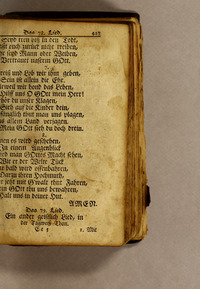 Das 78. Lied. 443
Seyd treu biß in den Todt,
euch zurück nicht treiben,
seyd Mann oder Weiben,
Vertrauet unserm GOtt.
Preiß und Lob wir ihm geben,
Sein ist allein die Ehr,
weil wir hond das Leben,
Hilff uns O GOtt mein Herr!
hör du unser Klagen,
Sieh auf die Kinder dein,
thut man uns plagen,
aus allem Land verjagen.
Mein GOtt sieh du doch drein.
es wird geschehen,
In einem Augenblick
wird man GOttes Macht sehen,
Wie er der Welte Tück
bald wird offenbahren,
Darzu ihren Hochmuth.
jetzt mit Gwalt thut Fahren,
GOtt thu uns bewahren,
Halt uns in deiner Hut.
AMEN.
Das 79. Lied.
Ein ander geistlich Lied, in
der Tagweiß Than.
1. Mit